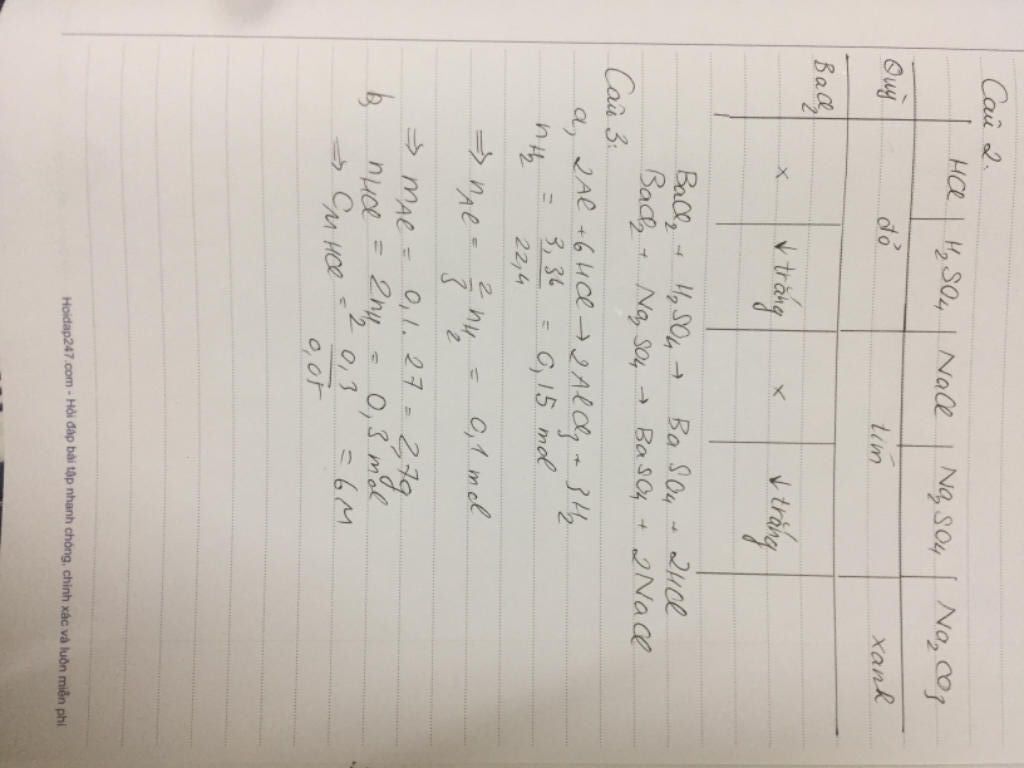 Câu 2.
HCl H₂SO₄ NaCl Na₂SO₄ Na₂CO₃
Quỳ đỏ tím xanh
BaCl₂ x ↓trắng x ↓trắng
BaCl₂ + H₂SO₄ → BaSO₄ + 2HCl
BaCl₂ + Na₂SO₄ → BaSO₄ + 2NaCl
Câu 3:
a, 2Al + 6HCl → 2AlCl₃ + 3H₂
nH₂ = 3,36/22,4 = 0,15 mol
⇒ nAl = 2/3 nH₂ = 0,1 mol
⇒ mAl = 0,1.27 = 2,7g
b, nHCl = 2nH₂ = 0,3 mol
⇒ CM HCl = 0,3/0,05 = 6M
Hoidap247.com - Hỏi đáp bài tập nhanh chóng, chính xác và luôn miễn phí